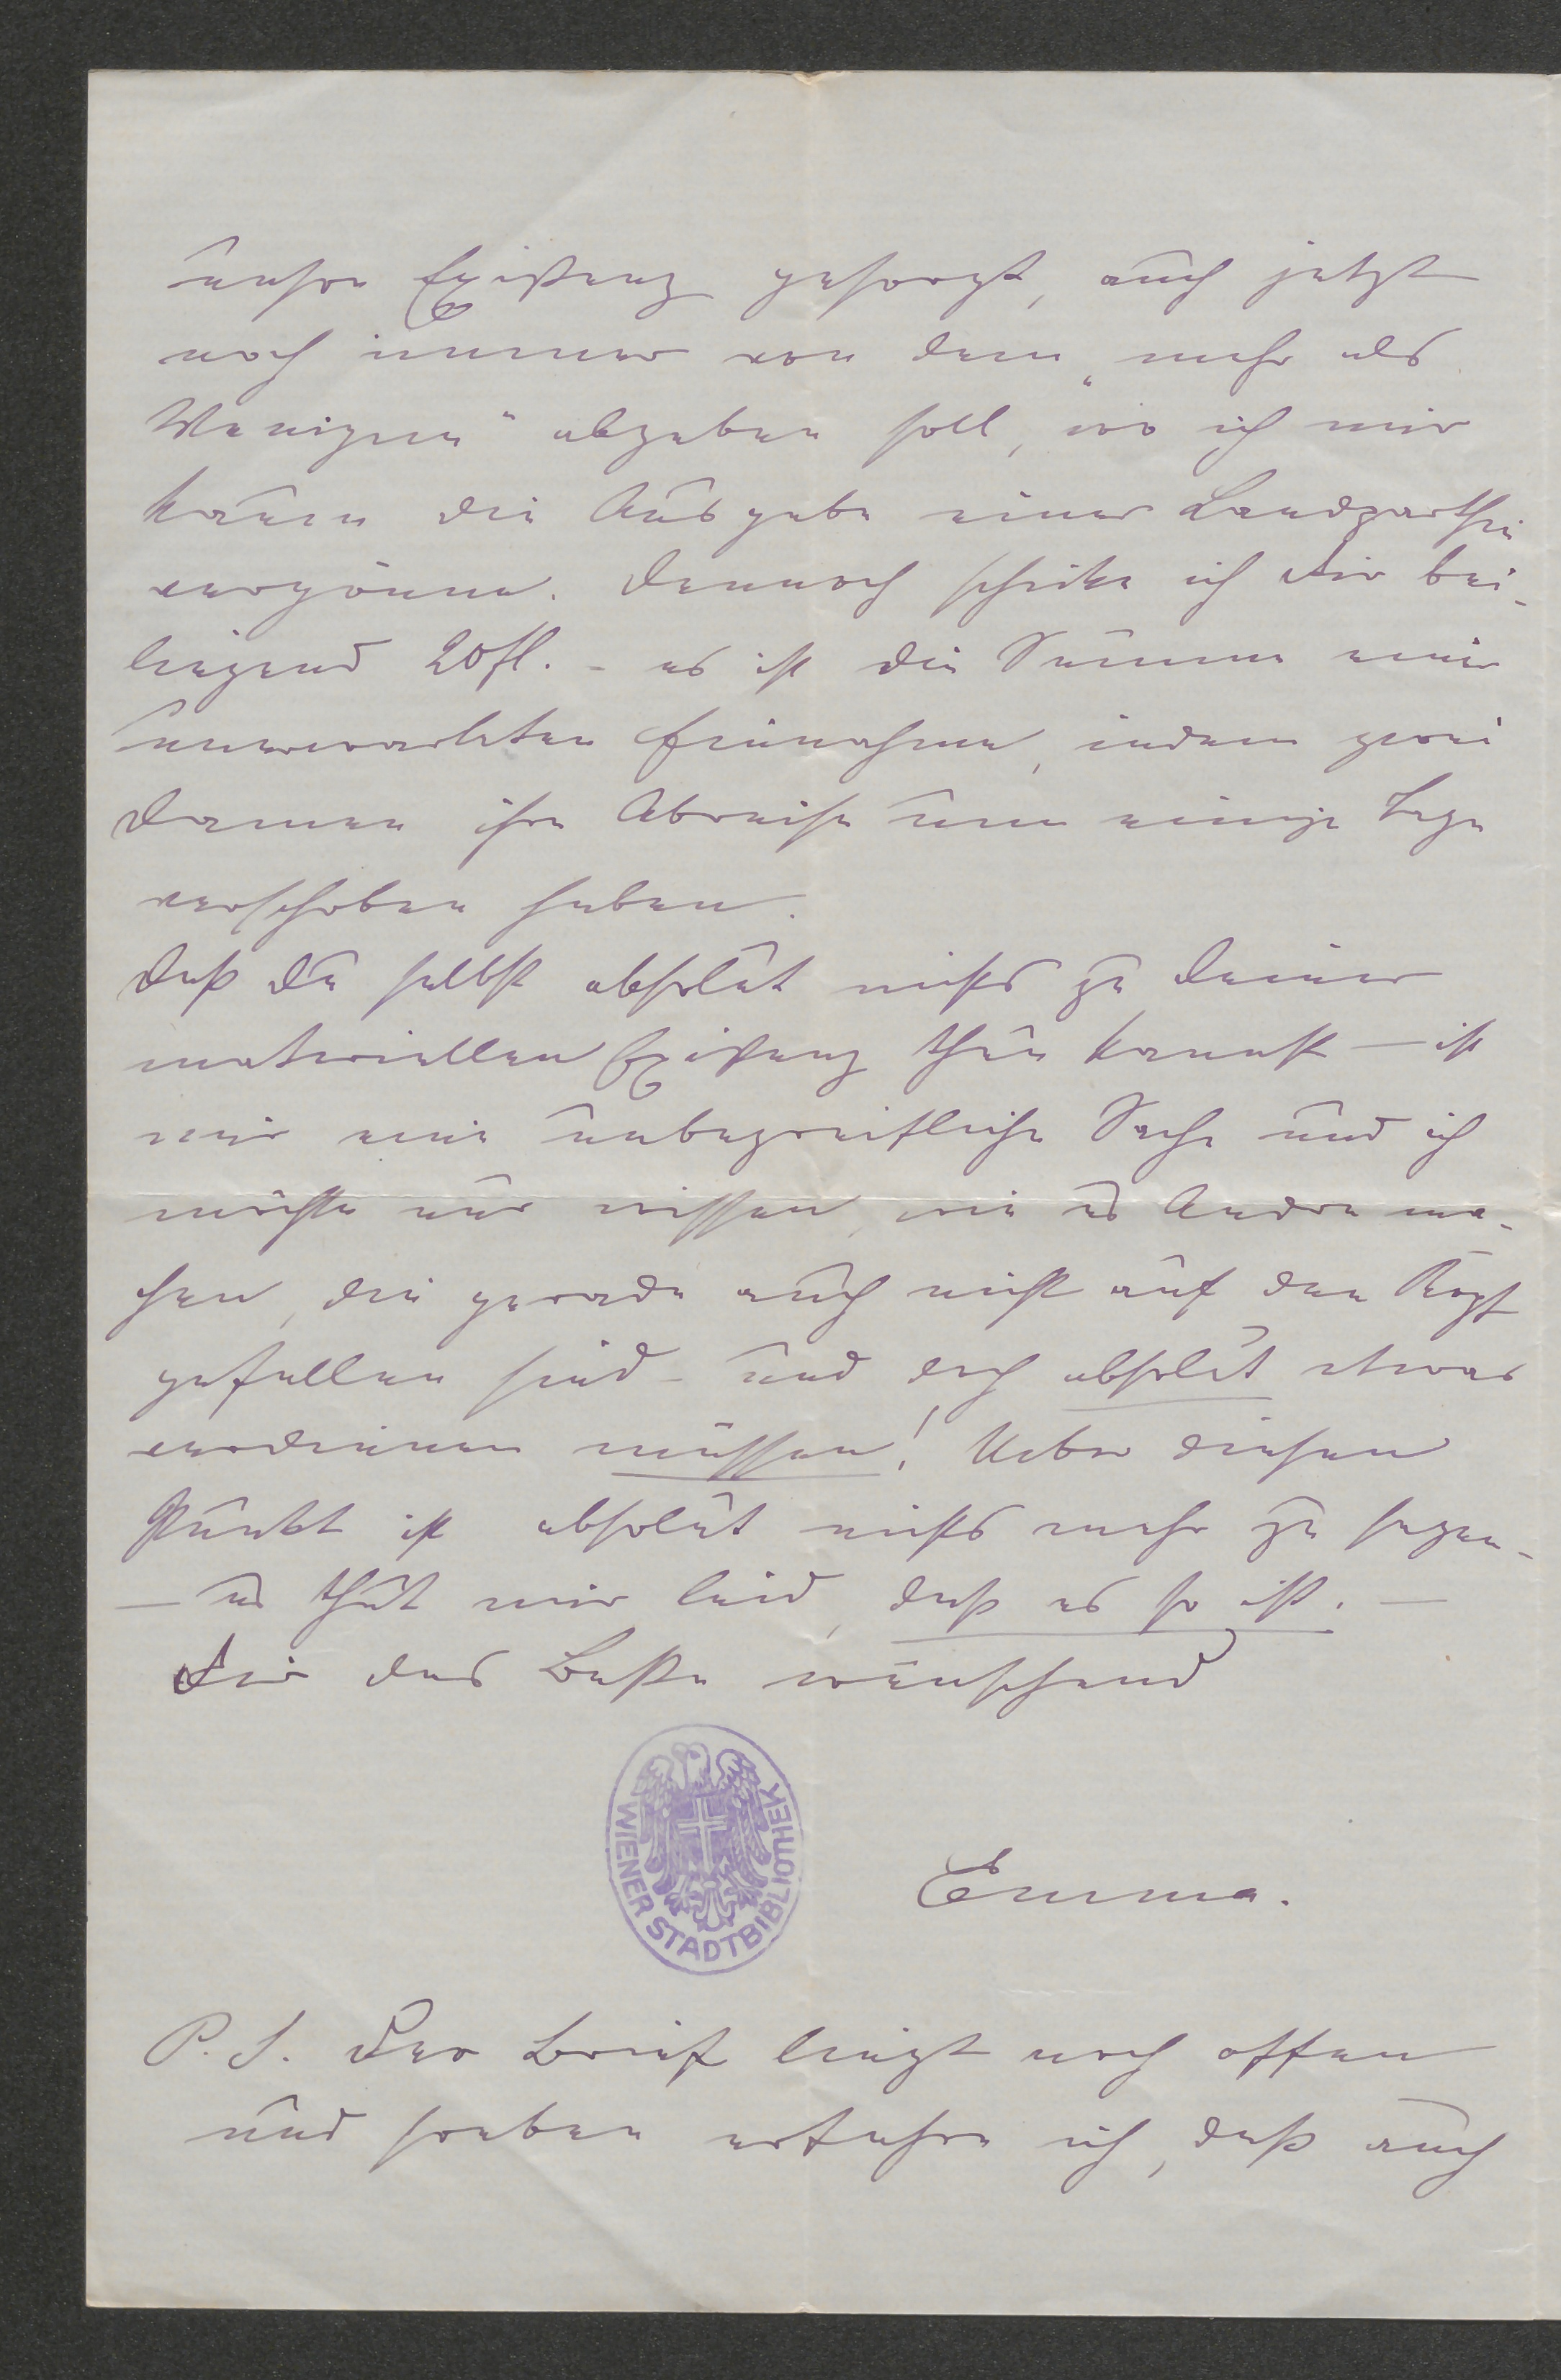 unsre Existenz gesorgt, auch jetzt
noch immer von dem „mehr als
Wenigen" abgeben soll, wo ich mir
kaum die Ausgabe einer Landparthie
vergönne. Dennoch schicke ich Dir bei-
liegend 20 fl. - es ist die Summe einer
unerwarteten Einnahme, indem zwei
Damen ihre Abreise um einige Tage
verschoben haben.
Daß Du selbst absolut nichts zu Deiner
materiellen Existenz thun kannst — ist
mir eine unbegreifliche Sache und ich
möchte nur wissen, wie es Andre ma-
chen, die gerade auch nicht auf den Kopf
gefallen sind - und doch absolut etwas
verdienen müssen! Ueber diesen
Punkt ist absolut nichts mehr zu sagen -
— es thut mir leid, daß es so ist. —
Dir das Beste wünschend
WIENER STADTBIBLIOTHEK
Emma.
P. S. Der Brief liegt noch offen
und soeben erfahre ich, daß auch